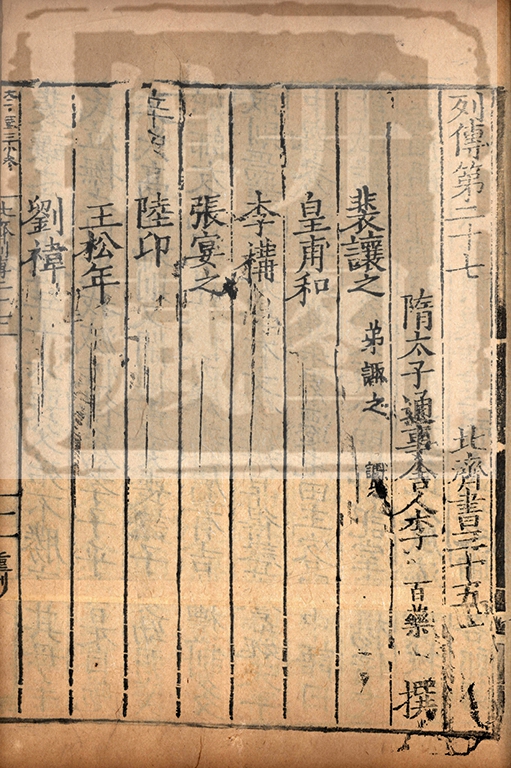 列傳第二十七 北齊書三十五
隋太子通事舍人李 百藥 撰
裴讓之 弟諏之 讞之
皇甫和
李構
張宴之
陸卬
王松年
劉禕